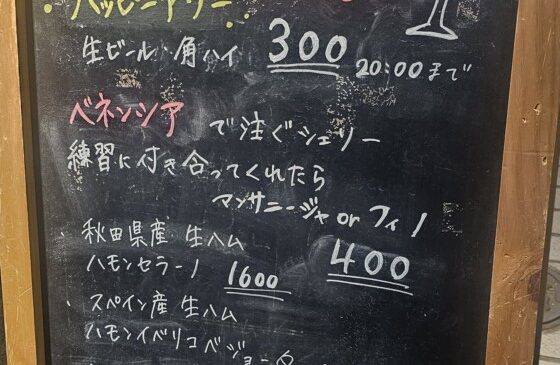 ハッピーアワー
生ビール・角ハイ 300 20:00まで
ベネンシア で注ぐシェリー
練習に付き合ってくれたら
マンサニージャ or フィノ
400
・秋田県産 生ハム
ハモンセラーノ 1600
・スペイン産 生ハム
ハモンイベリコベジョータ